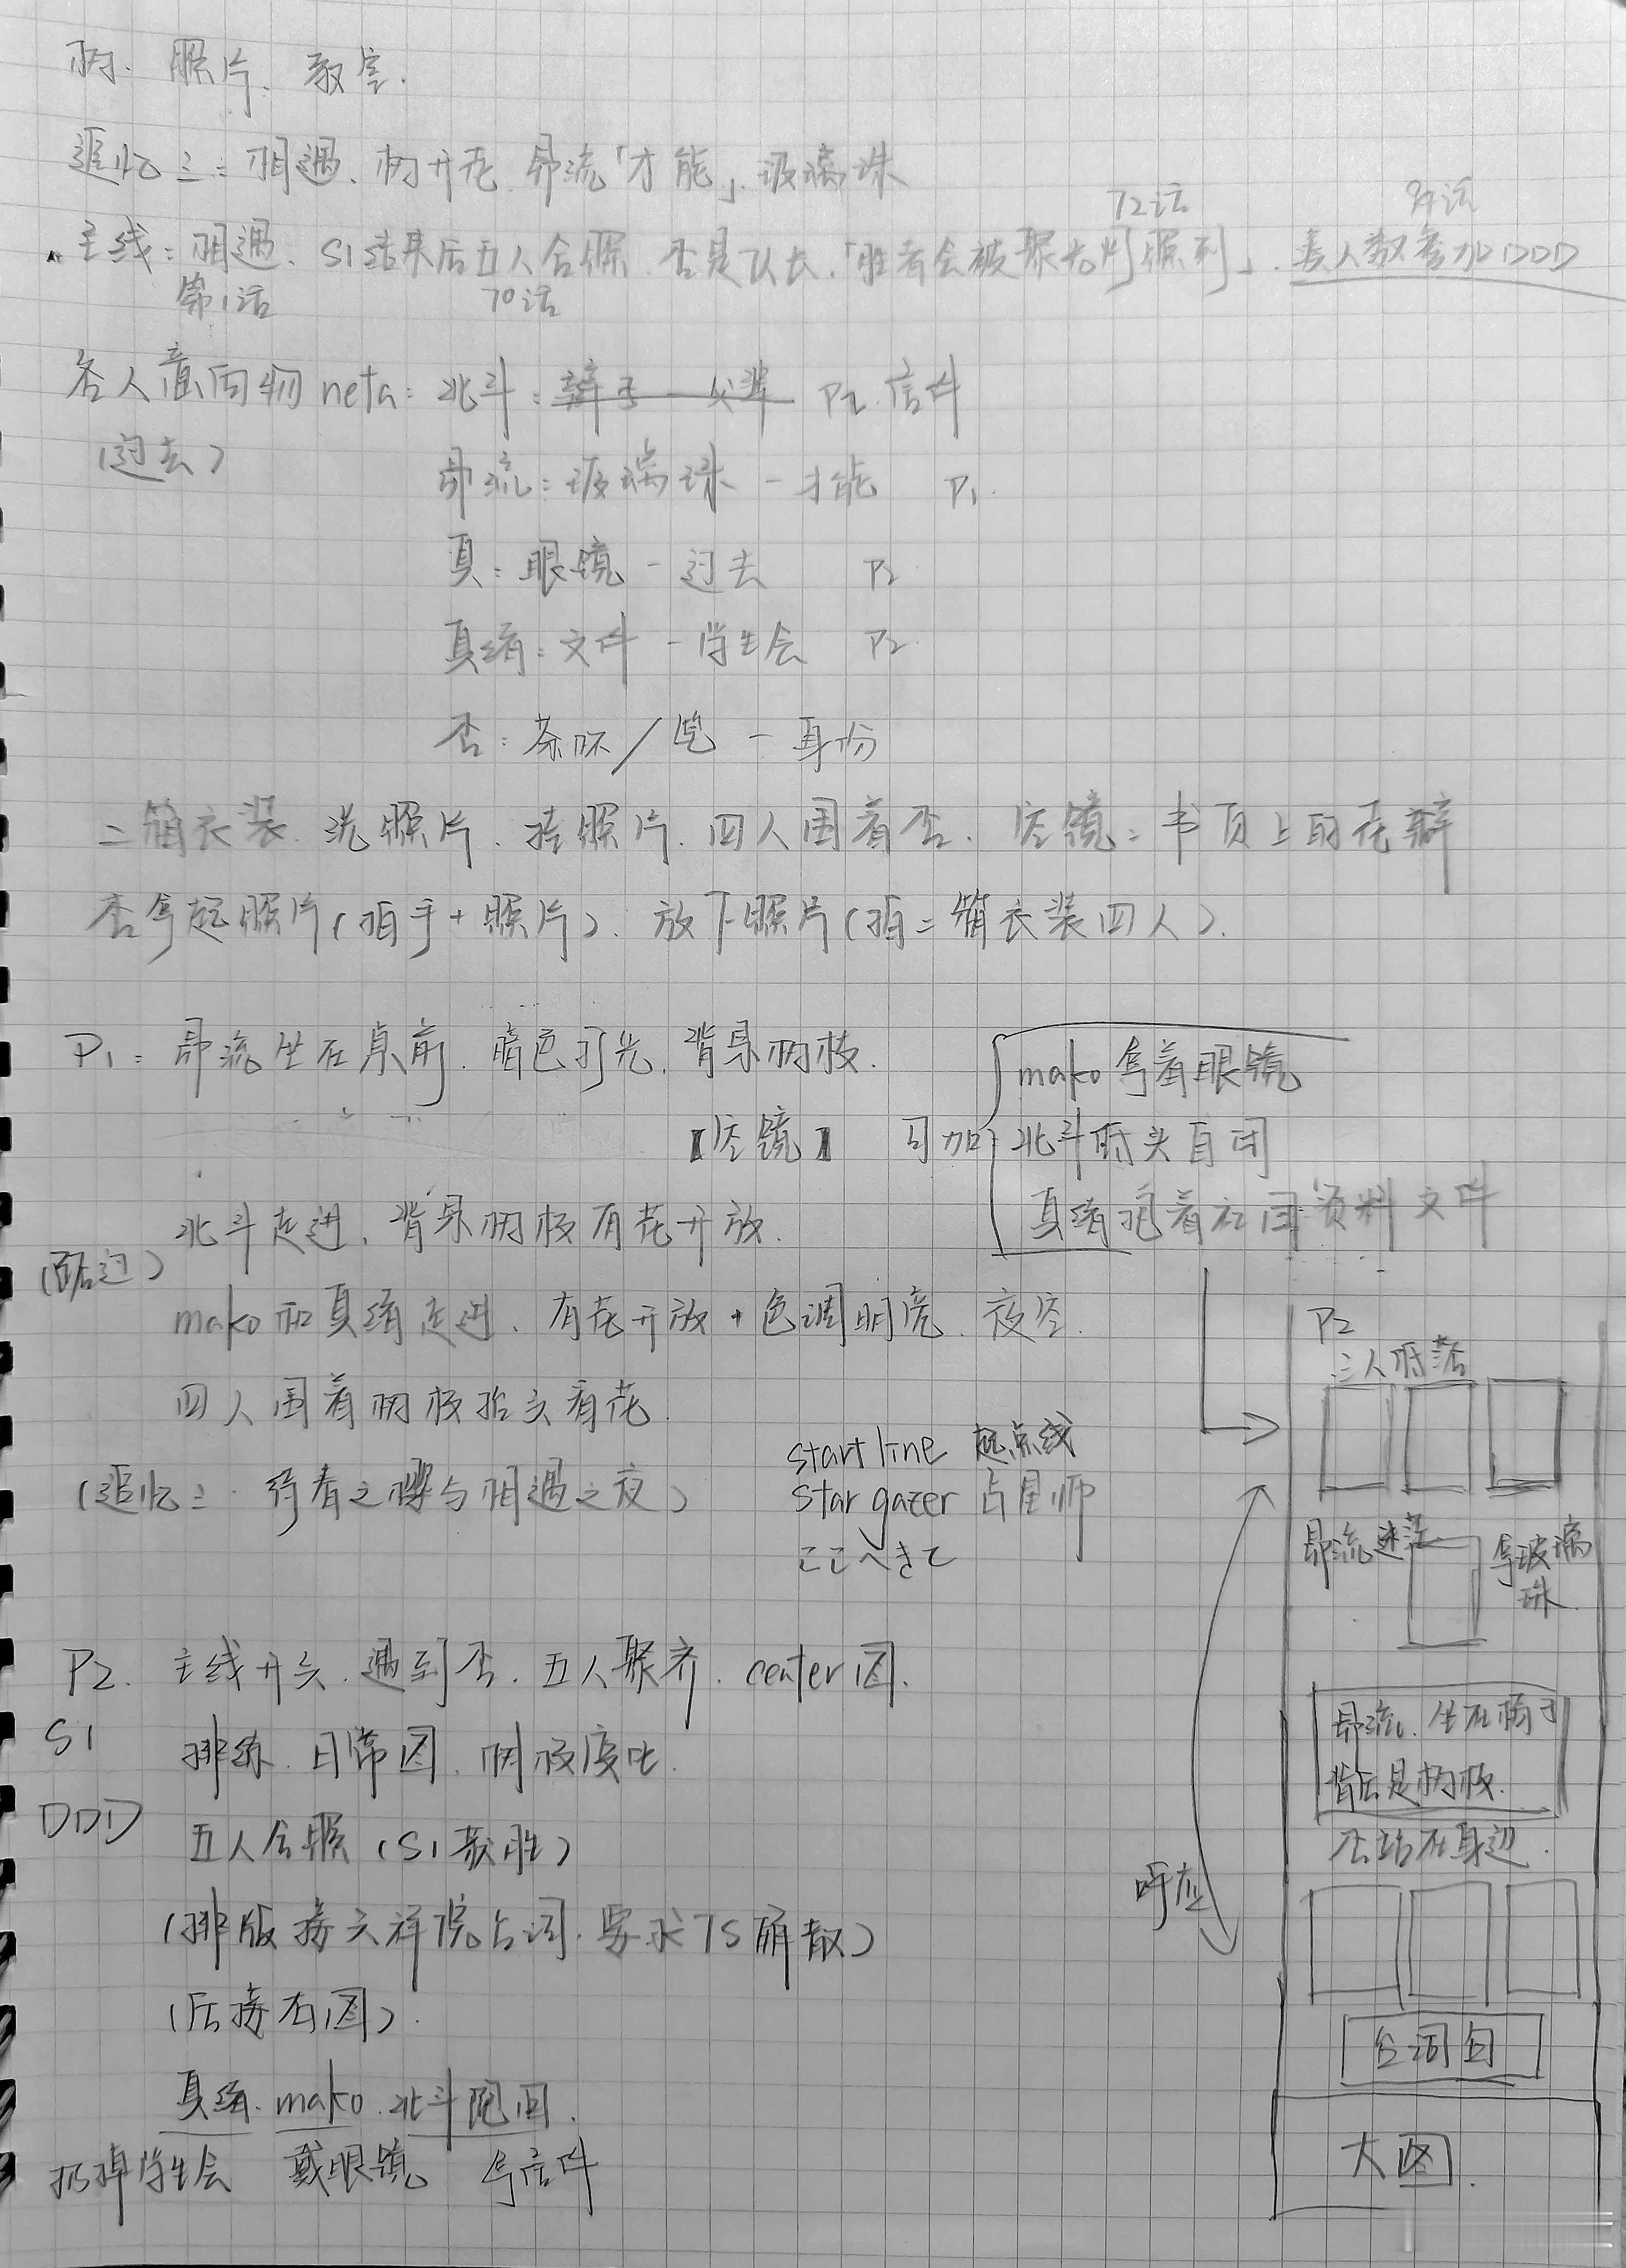 树、照片、教室.
追忆三：相遇、树开花、昴流「才能」、玻璃珠
72话 94话
主线：相遇、S1结果后五人合照、杏是队长、「胜者会被聚光灯照到」、差人数参加DDD
第1话 70话
各人意向物neta：北斗： P2.信件
(过去) 昴流：玻璃珠-才能 P1.
真：眼镜-过去 P2
真绪：文件-学生会 P2
杏：茶杯/ -身份
二箱衣装、洗照片、挂照片、四人围着杏、空镜：书页上的花瓣
杏拿起照片(拍手+照片)、放下照片(拍二箱衣装四人).
P1：昴流坐在桌前、暗色打光、背景树枝.
【空镜】 可加
mako拿着眼镜
北斗低头自闭
真绪抱着社团资料文件
北斗走进、背景树枝有花开放.
(路过)
mako和真绪走进、有花开放+色调明亮、夜空.
四人围着树枝抬头看花.
(追忆三·待春之樱与相遇之夜)
start line 起点线
star gazer 占星师
ここへきて
P2
三人低落
昴流迷茫 拿玻璃珠
P2. 主线开头、遇到杏、五人聚齐、center图.
S1 排练、日常图、树枝虚化.
DDD 五人合照(S1获胜)
(排版接天祥院台词、要求TS解散)
(后接右图).
真绪、mako、北斗跑回、
扔掉学生会 戴眼镜 拿信件
昴流、坐在椅子
背后是树枝.
杏站在身边.
呼应
台词白
大图.